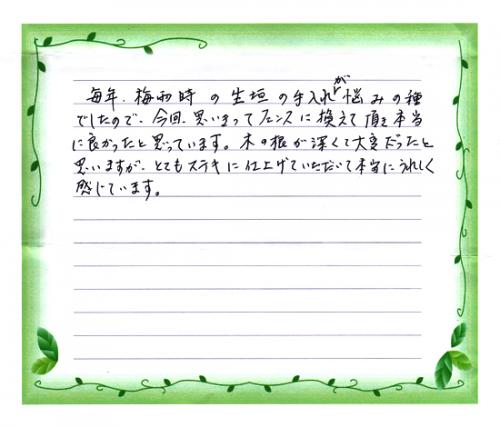 毎年、梅雨時の生垣の手入れが悩みの種
でしたので、今回、思いきってフェンスに換えて頂き本当
に良かったと思っています。木の根が深くて大変だったと
思いますが、とてもステキに仕上げていただいて本当にうれしく
感じています。